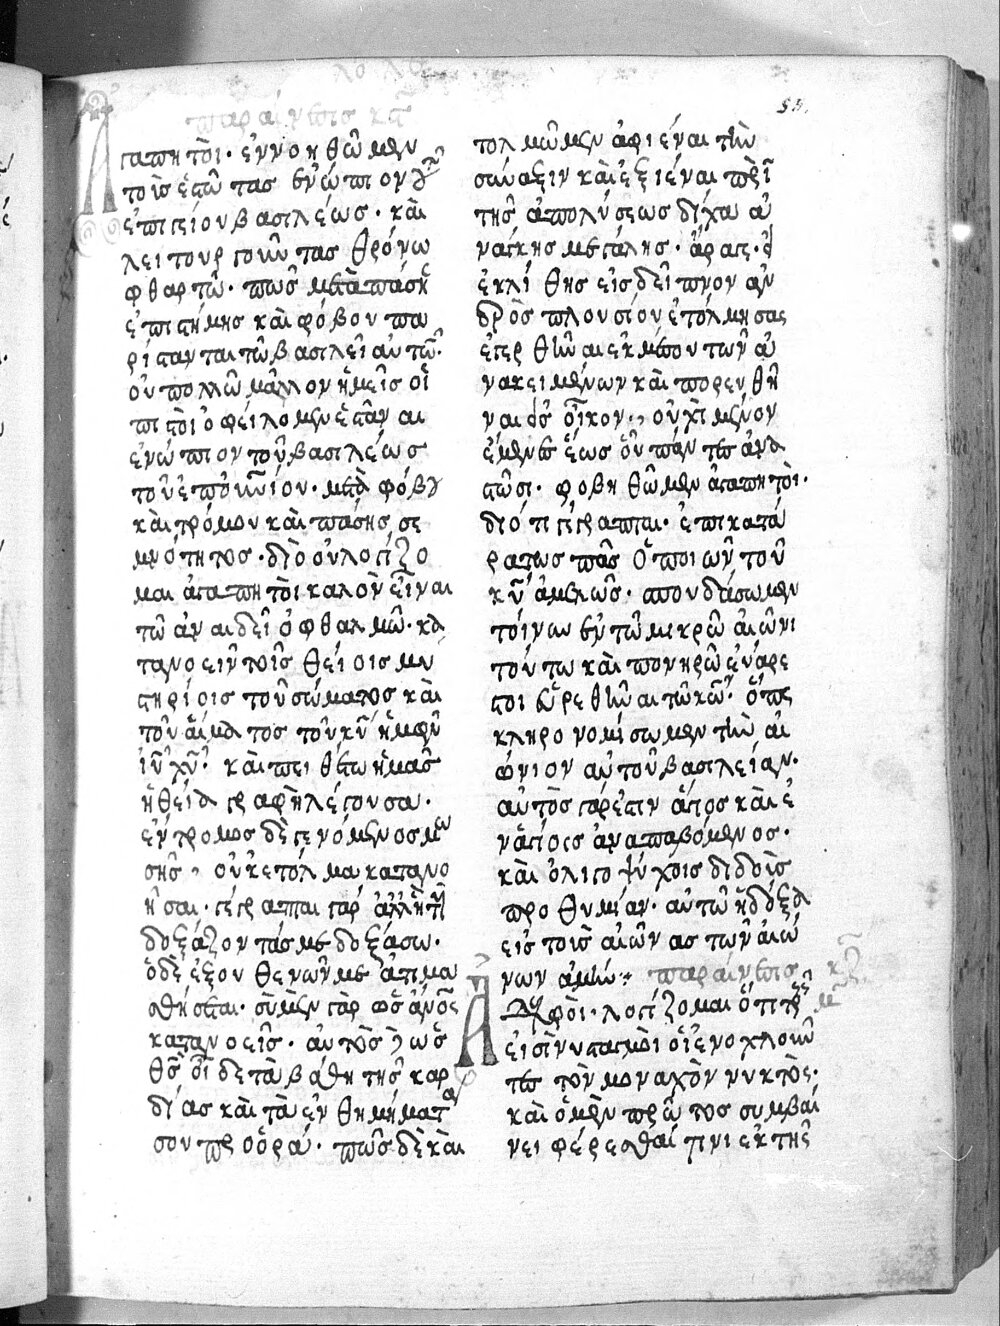 παραίνεσις κα
Ἀγαπητοὶ· ἐννοηθῶμεν
τοὺς ἑστῶτας ἐνώπιον τοῦ
ἐπιγείου βασιλέως· καὶ
λειτουργοῦντας θρόνω
φθαρτῶ· πῶς μετὰ πάσης
ἐπιστήμης καὶ φόβου πα
ρίστανται τῶ βασιλεῖ αὐτῶν·
οὐ πολλῶ μᾶλλον ἡμεῖς οἱ
πιστοὶ ὀφείλομεν ἑστᾶναι
ἐνώπιον τοῦ βασιλέως
τοῦ ἐπουνίου· μετὰ φόβου
καὶ τρόμου καὶ πάσης σε
μνότητος· διὸ οὐ λογίζο
μαι ἀγαπητοὶ καλὸν εἶναι
τῶ ἀναιδεῖ ὀφθαλμῶ· κα
τανοεῖν τοῖς θείοις μυ
στηρίοις τοῦ σώματος καὶ
τοῦ αἵματος τοῦ κυ ἡμῶν
ιυ χυ· καὶ πειθέτω ἡμᾶς
ἡ θεία γραφὴ λέγουσα·
ἔντρομος δὲ γενόμενος μω
σῆς, οὐκ ἐτόλμα κατανο
ῆσαι· γέγραπται γὰρ ἀλλ' ἢ τοὺς
δοξάζοντάς με δοξάσω·
ὁ δὲ ἐξουθενῶν με ἀτιμα
σθήσεται· σὺ μὲν γὰρ ὡς ἀνος
κατανοεῖς· αὐτὸς δὲ ὡς
θς οἶδε τὰ βάθη τῆς καρ
δίας καὶ τὰ ἐνθημήματα
σου προορᾶ· πῶς δὲ καὶ
τολμῶμεν ἀφιέναι τὴν
σύναξιν καὶ ἐξιέναι πρὸ
τῆς ἀπολύσεως δίχα ἀ
νάγκης μεγάλης· ἄρα γε εἰ
ἐκλίθης εἰς δεῖπνον ἀν
δρὸς πλουσίου ἐτόλμησας
ἐγερθῆναι ἐκ μέσου τῶν ἀ
νακειμένων καὶ πορευθῆ
ναι εἰς οἶκον, οὐχὶ μένον
ἔμενες ἕως οὗ πάντες ἀνα
στῶσι· φοβηθῶμεν ἀγαπητοὶ·
διότι γέγραπται· ἐπικατά
ρατος πᾶς ὁ ποιῶν τοῦ
κυ ἀμελῶς· σπουδάσωμεν
τοίνυν ἐν τῶ μικρῶ αἰῶνι
τούτω καὶ πονηρῶ ἐνάρε
στοι εὑρεθῆναι τῶ κω· ὅπως
κληρονομήσωμεν τὴν αἰ
ώνιον αὐτοῦ βασιλείαν·
αὐτὸς γάρ ἐστιν ἅγιος καὶ ἐ
ν ἁγίοις ἀναπαυόμενος·
καὶ ὀλιγοψύχοις διδοὺς
προθυμίαν· αὐτῶ ἡ δόξα
εἰς τοὺς αἰῶνας τῶν αἰώ
νων ἀμήν: παραίνεσις κβ
Ἀδελφοὶ· λογίζομαι ὅτι τρεῖς
εἰσὶν υπασμοὶ οἱ ἐνοχλοῦν
τες τὸν μοναχὸν νυκτὸς·
καὶ ὁ μὲν πρῶτος συμβαί
νει φέρεσθαί τινι ἐκ τῆς